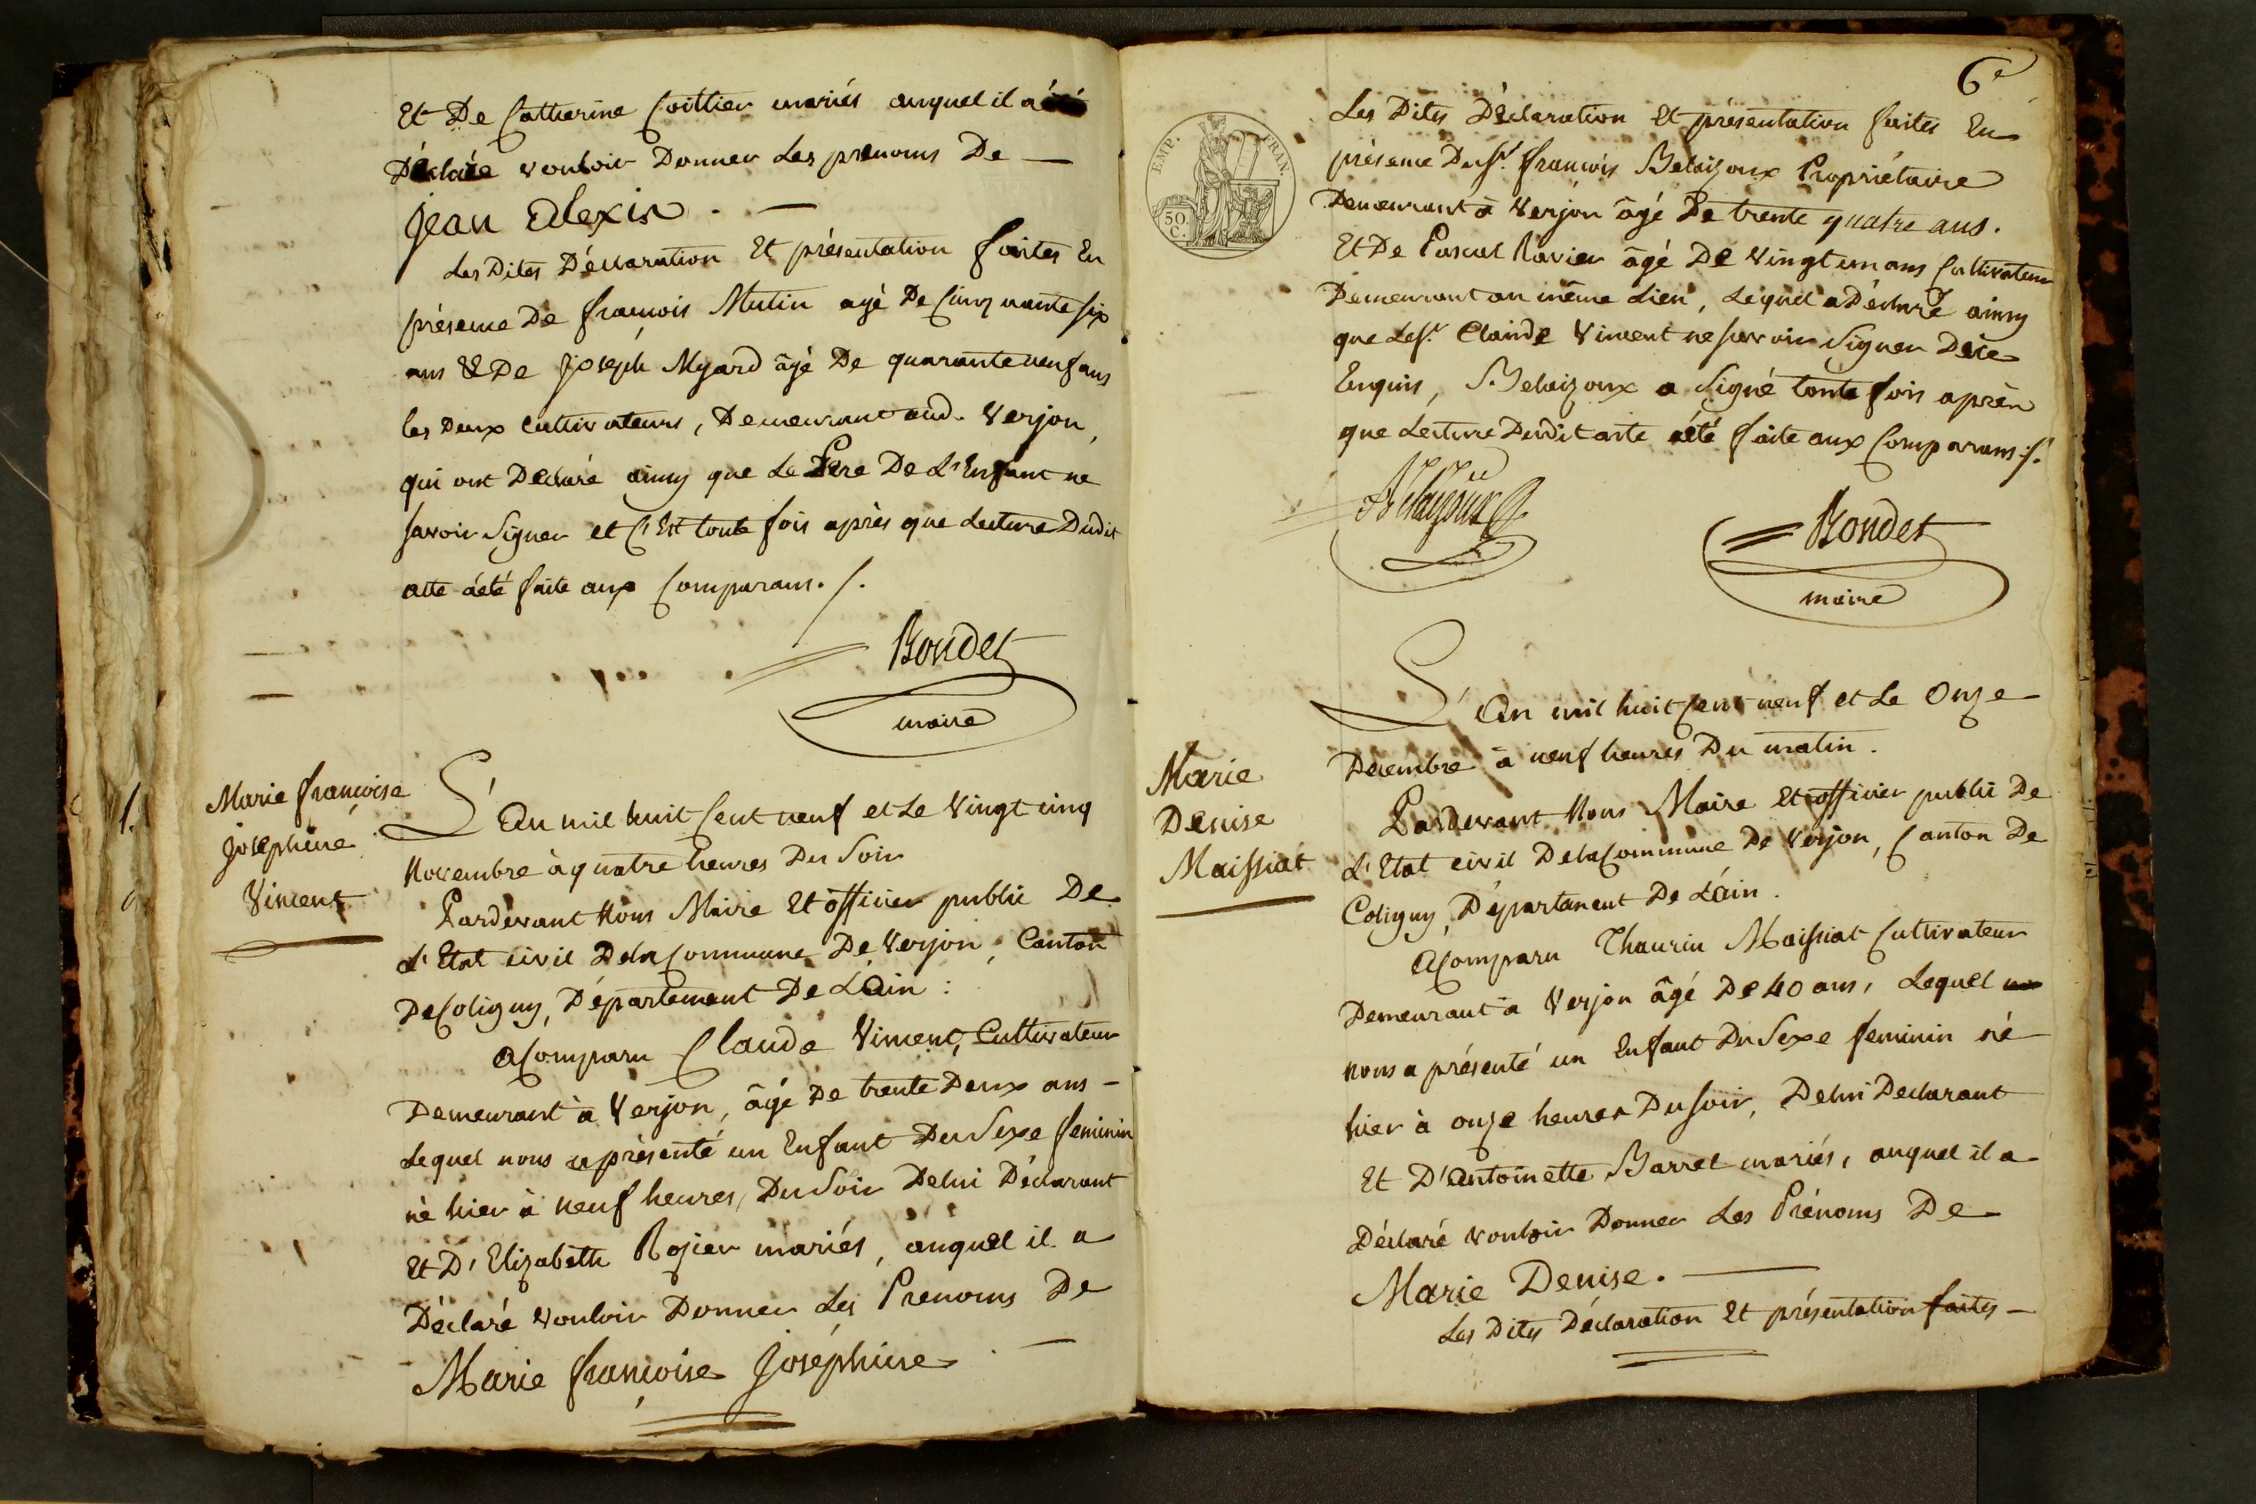 Et De Catherine Coittier mariés auquel il a été
Déclaré vouloir Donner Les prenoms De —
Jean Alexis. —
Les Dites Déclaration Et présentation faites En
présence De françois Mutin agé De Cinquante six
ans & De Joseph Myard âgé De quarante neuf ans
les Deux cultivateurs, Demeurant aud. Verjon,
qui ont Declaré ainsy que Le Pere De L'Enfant ne
savoir Signer et C'Est toute fois après que Lecture Dudit
acte a été faite aux Comparans./.
Bondet
maire
Marie françoise
Josephine
Vincent
L'An mil huit Cent neuf et Le Vingt cinq
Novembre à quatre heures Du Soir
Pardevant Nous Maire Et officier public De
L'Etat civil De la Commune De Verjon, Canton
De Coligny, Département De L'Ain :
A Comparu Claude Vincent, Cultivateur
Demeurant à Verjon, âgé De trente Deux ans —
Lequel nous a présenté un Enfant Du Sexe feminin
né hier à neuf heures Du Soir De lui Déclarant
Et D'Elizabeth Rosier mariés, auquel il a
Déclaré vouloir Donner Les Prenoms De
Marie françoise Joséphine —
6e
EMP. FRAN.
50 C.
Les Dites Déclaration Et présentation faites En
présence Du Sr. françois Belaizoux Propriétaire
Demeurant à Verjon âgé De trente quatre ans.
Et De Pascal Ravier âgé De Vingt un ans Cultivateur
Demeurant au même Lieu, Lequel a Déclaré ainsy
que Le Sr. Claude Vincent ne savoir Signer De ce
Enquis, Belaizoux a Signé toute fois après
que Lecture Dudit acte a été faite aux Comparans./.
Belaizoux
Bondet
maire
Marie
Denise
Maissiat
L'An mil huit Cent neuf et Le Onze —
Decembre à neuf heures Du matin.
Pardevant Nous Maire Et officier public De
L'Etat civil De la Commune De Verjon, Canton De
Coligny, Département De L'Ain.
A Comparu Thaurin Maissiat Cultivateur
Demeurant à Verjon âgé De 40 ans, Lequel
nous a présenté un Enfant Du Sexe feminin né
hier à onze heures Du Soir, De lui Declarant
Et D'Antoinette Barret mariés, auquel il a
Déclaré vouloir Donner Les Prénoms De
Marie Denise. —
Les Dites Déclaration Et présentation faites —